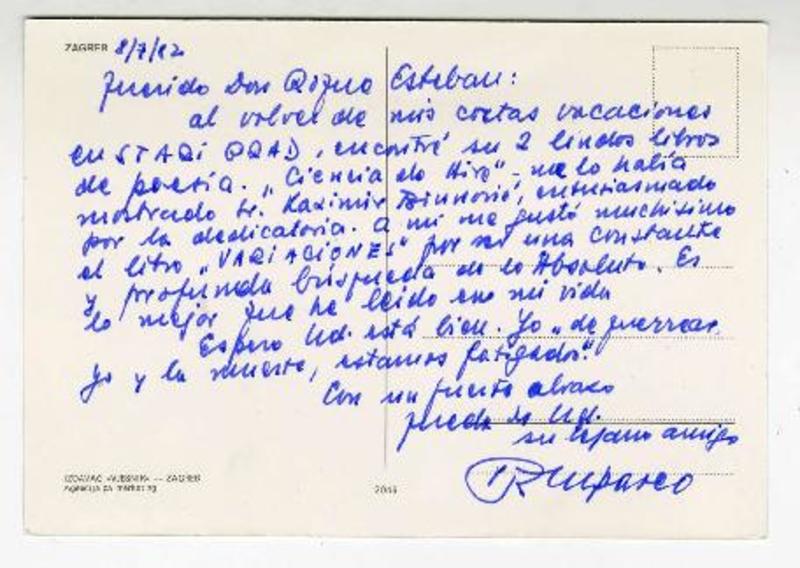 ZAGREB 8/7/82
Querido Don Roque Esteban:
al volver de mis cortas vacaciones
en STARI GRAD, encontré su 2 lindos libros
de poesía. „Ciencia do Aire" - me lo había
mostrado sr. Kazimir, entusiasmado
por la dedicatoria. A mi me gustó muchísimo
el libro „VARIACIONES" por ser una constante
y profunda búsqueda de lo Absoluto. Es
lo mejor que he leído en mi vida
Espero Ud. está bien. Yo „de guerrear
yo y la muerte, estamos fatigados."
Con un fuerte abrazo
queda de Ud.
su lejano amigo
IZDAVAČ »VJESNIK« — ZAGREB
Agencija za marketing
2046